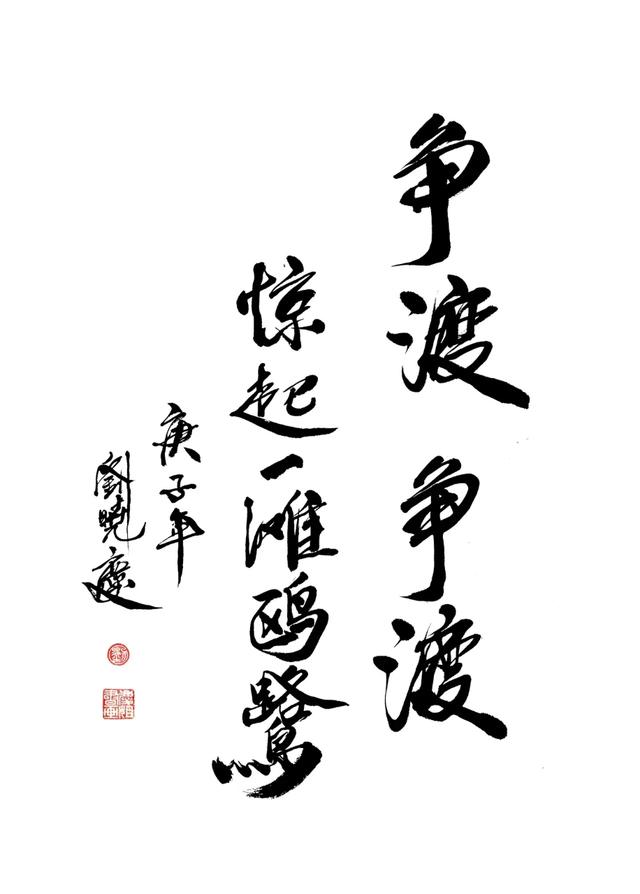 争渡争渡
惊起一滩鸥鹭
庚子年
劉曉慶